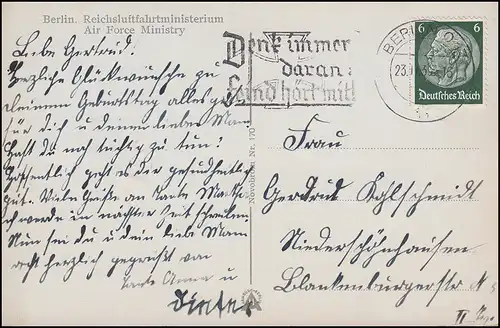 Berlin. Reichsluftfahrtministerium
Air Force Ministry
Liebe Gertrud.
Herzliche Glückwünsche zu
deinem Geburtstag alles gute
für dich u deinen lieben Mann
Hast du noch tüchtig zu tun?
Hoffentlich geht es dir gesundheitlich
gut. Viele Grüße an Tante Martha
ich werde in nächster Zeit schreiben.
Nun sei du u dein lieber Mann
recht herzlich gegrüßt von
Tante Anna u
Dieter
Denk immer
daran:
Feind hört mit!
BERLIN
23.
6 6
Deutsches Reich
Novobilder Nr. 170
Frau
Gertrud Kohlschmidt
Niederschönhausen
Blankenburgerstr
II